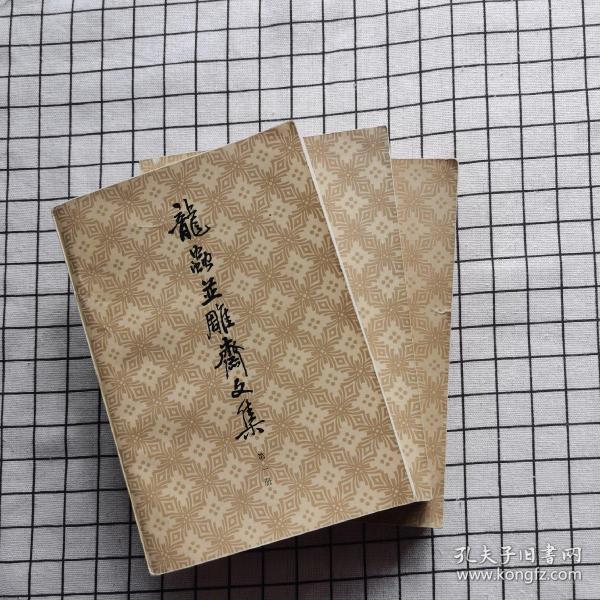 龍蟲並雕齋文集
第一册
孔夫子旧书网
www.kongfz.com